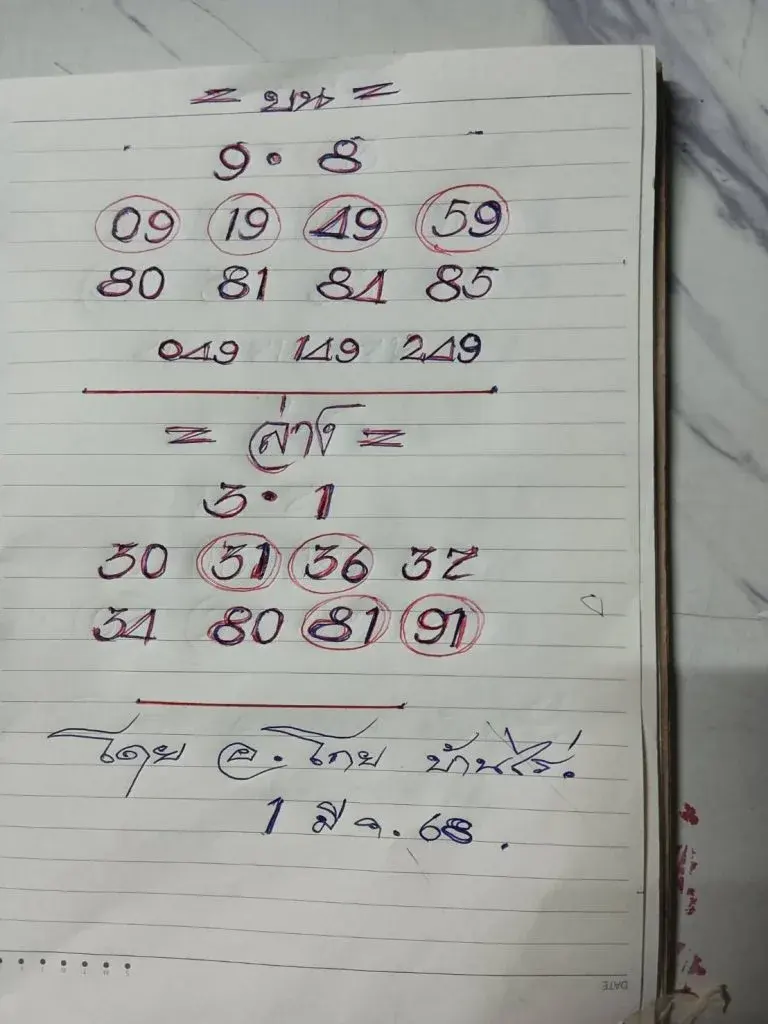 = บน =
9 • 8
09 19 49 59
80 81 84 85
049 149 249
= ล่าง =
3 • 1
30 31 36 37
34 80 81 91
โดย อ. โกย บ้านไร่.
1 มี ค. 68.
DATE